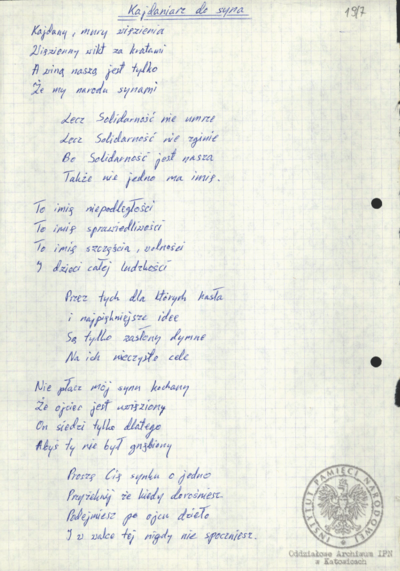 Kajdaniarz do syna
19/7
Kajdany, mury więzienia
Więzienny wikt za kratami
A winą naszą jest tylko
Że my narodu synami
Lecz Solidarność nie umrze
Lecz Solidarność nie zginie
Bo Solidarność jest nasza
Także nie jedno ma imię.
To imię niepodległości
To imię sprawiedliwości
To imię szczęścia, wolności
I dzieci całej ludzkości
Przez tych dla których hasła
i najpiękniejsze idee
Są tylko zasłony dymne
Na ich nieczyste cele
Nie płacz mój synu kochany
Że ojciec jest uwięziony
On siedzi tylko dlatego
Abyś ty nie był gnębiony
Proszę Cię synku o jedno
Przyrzeknij że kiedy dorośniesz
Podejmiesz po ojcu dzieło
I w walce tej nigdy nie spoczniesz.
INSTYTUT PAMIĘCI NARODOWEJ
Oddziałowe Archiwum IPN
w Katowicach